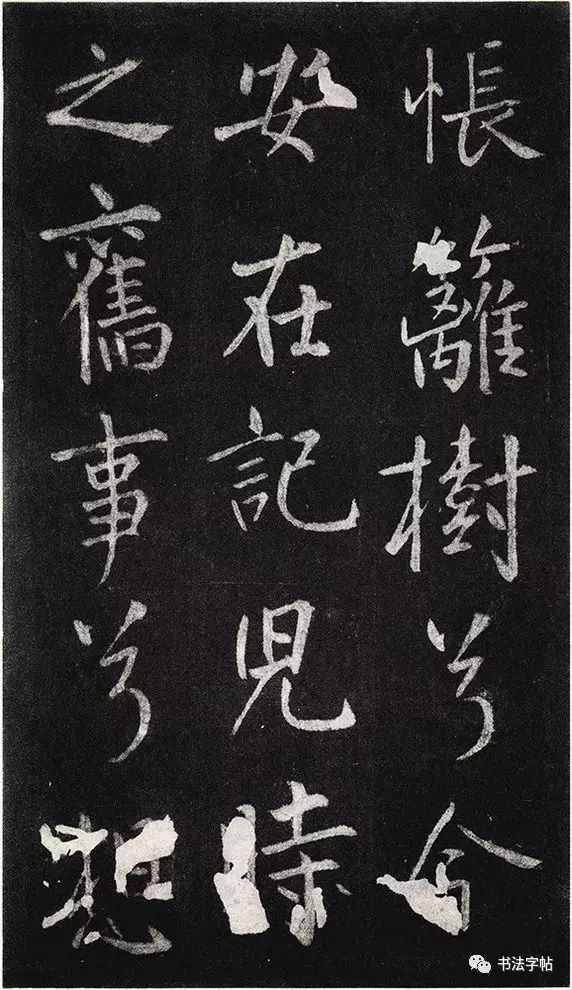 悵籬樹兮今
安在記兒時
之舊事兮想
书法字帖